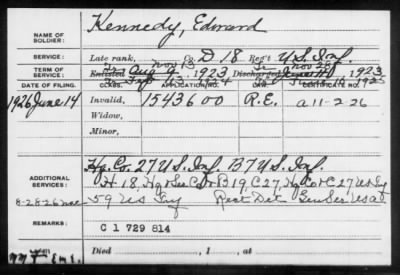 NAME OF SOLDIER: Kennedy, Edward
SERVICE: Late rank, Co. D 18 Reg't U.S. Inf.
Nov 13 Nov 28
TERM OF SERVICE: Enlisted Aug 9, 1923 Discharged 1923
1924 1925
DATE OF FILING. CLASS. APPLICATION NO. LAW. CERTIFICATE NO.
1926 June 14 Invalid, 1543600 P.E. a 11-2-26
Widow,
Minor,
Hq. Co. 27 U.S. Inf. B 7 U.S. Inf.
ADDITIONAL SERVICES: H 18, Hq & Ser Co & B 19, C 27, Hq Co & C 27 US Inf
8-28-26 59 US Inf Rect Det Gen Ser USA
REMARKS: C 1 729 814
Died , 1 , at